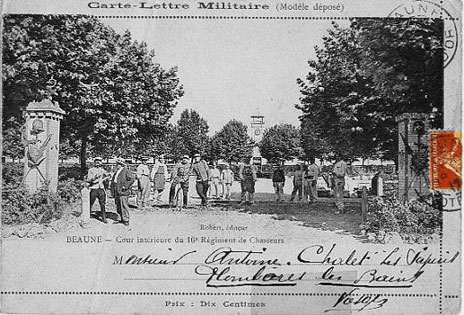 Carte-Lettre Militaire (Modèle déposé)
BEAUNE
Robert, éditeur
BEAUNE — Cour intérieure du 16e Régiment de Chasseurs
Monsieur Antoine, Chalet les Sapins
Plombières les Bains
Vosges
Prix : Dix Centimes